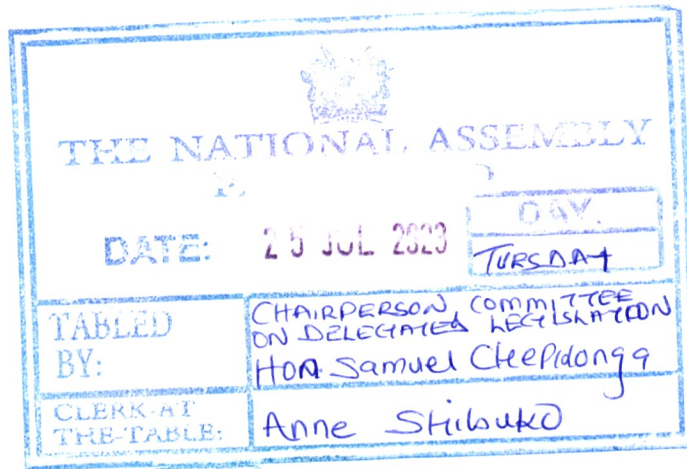 THE NATIONAL ASSEMBLY
DATE: 25 JUL 2023
DAY.
TUESDAY
TABLED BY:
CHAIRPERSON COMMITTEE
ON DELEGATED LEGISLATION
HON Samuel Chepkonga
CLERK-AT THE-TABLE:
Anne Shibuko